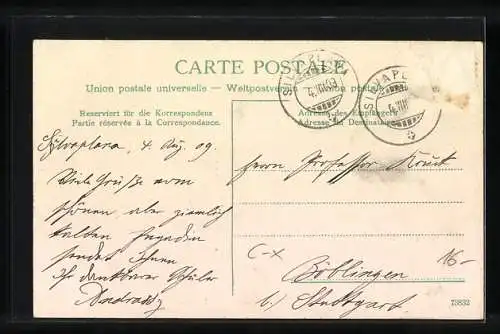 CARTE POSTALE.
Union postale universelle. — Weltpostverein. — Unione postale
Reserviert für die Korrespondenz
Partie réservée à la Correspondance.
Adresse des Empfängers
Adresse du Destinataire
Silvaplana, 4. Aug. 09.
Viele Grüße vom
schönen, aber ziemlich
kalten Engadin
sendet Ihnen
Ihr dankbarer Schüler
Herrn Professor
Böblingen
b/ Stuttgart
C-x
16.-
73832